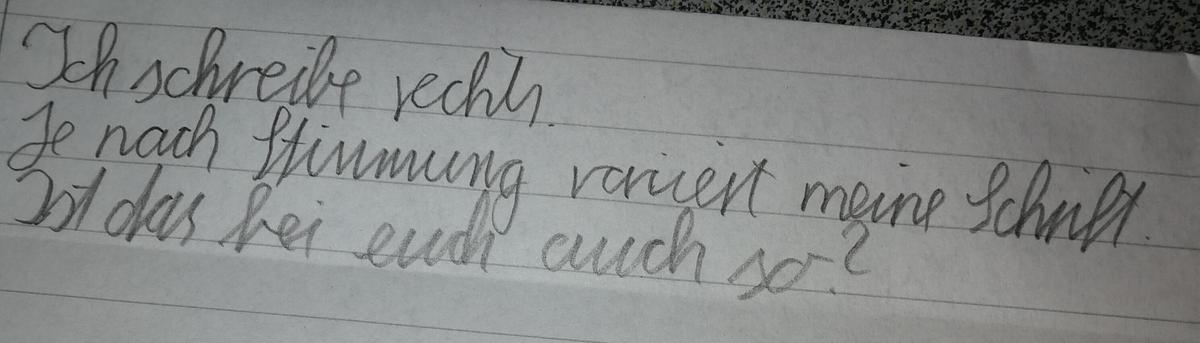 Ich schreibe rechts.
Je nach Stimmung variiert meine Schrift.
Ist das bei euch auch so?